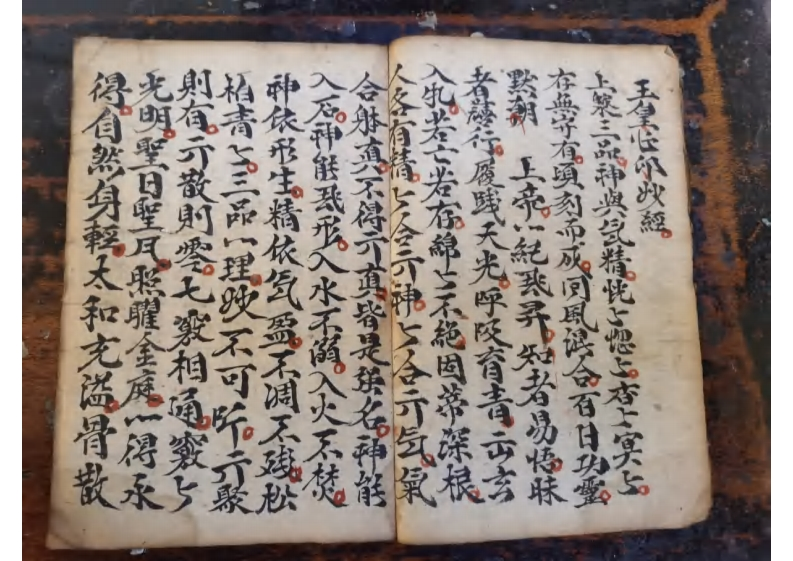 玉皇心印妙經
上藥三品神與气精恍々惚々杳々冥々
存無守有頃刻而成回風混合百日功靈
默朝 上帝一紀飛昇知者易悟昧
者難行履踐天光呼吸育青出玄
入牝若亡若存綿々不絕固蒂深根
人各有精々合亓神々合亓气氣
合躰真不得亓真皆是強名神能
入石神能飛形入水不溺入火不焚
神依形生精依气盈不凋不残松
栢青々三品一理妙不可听亓聚
則有亓散則零七竅相通竅々
光明聖日聖月照耀金庭一得永
得自然身輕太和充溢骨散